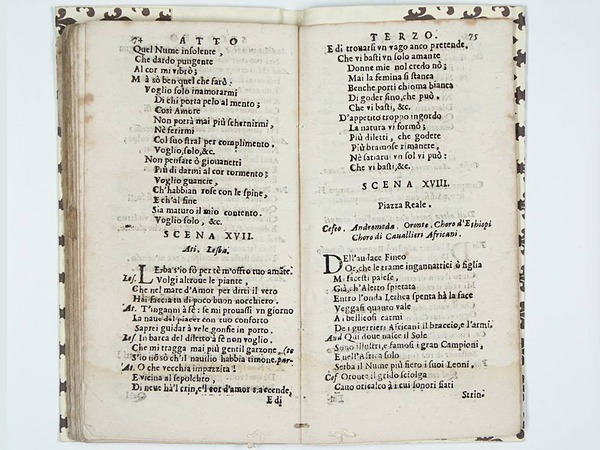 74 ATTO
Quel Nume insolente,
Che dardo pungente
Al cor mi vibrò;
Mà sò ben quel che farò.
Voglio solo inamorarmi
Di chi porta pelo al mento;
Così Amore
Non potrà mai più schernirmi,
Nè ferirmi
Col suo stral per complimento.
Voglio, solo, &c.
Non pensate ò giouanetti
Più di darmi al cor tormento;
Voglio guancie,
Ch'habbian rose con le spine,
E ch'al fine
Sia maturo il mio contento.
Voglio solo, &c.
SCENA XVII.
Ati. Lesba.
LEsba s'io sò per tè m'offro tuo amante.
Les. Volgi altroue le piante,
Che nel mare d'Amor per dirti il vero
Hai faccia tu di poco buon nocchiero.
At. T'inganni à fè: se mi prouassi vn giorno
La naue del piacer con tuo conforto
Saprei guidar à vele gonfie in porto.
Les In barca del diletto à fè non voglio.
Che mi tragga mai più gentil garzone, (to
S'io nò sò ch'il nauilio habbia timone. par-
At. O che vecchia impazzita!
E vicina al sepolchro,
Di neue hà'l crin, e'l cor d'amor s'accende,
E di
TERZO. 75
E di trouarsi vn vago anco pretende.
Che vi basti vn solo amante
Donne mie nol credo nò;
Mai la femina si stanca
Benche porti chioma bianca
Di goder sino, che può.
Che vi basti, &c.
D'appetito troppo ingordo
La natura vi formò;
Più diletti, che godete
Più bramose rimanete,
Nè satiarui vn sol vi può:
Che vi basti, &c.
SCENA XVIII.
Piazza Reale.
Cefeo. Andromeda. Oronte. Choro d'Ethiopi
Choro di Cauallieri Africani.
DEll'audace Fineo
Or, che le trame ingannatrici ò figlia
Mi fece si palese,
Già, ch'Aletto spietata
Entro l'onda Lethea spenta hà la face
Veggasi quanto vale
A i bellicosi carmi
De i guerrieri Africani il braccio, e l'armi.
And Qui doue nasce il Sole
Sono illustri, e famosi i gran Campioni,
E nell'Africa solo
Serba il Nume più fiero i suoi Leoni,
Cef Oronte il grido sciolga
Cauo oricalco à i cui sonori fiati
Strin-